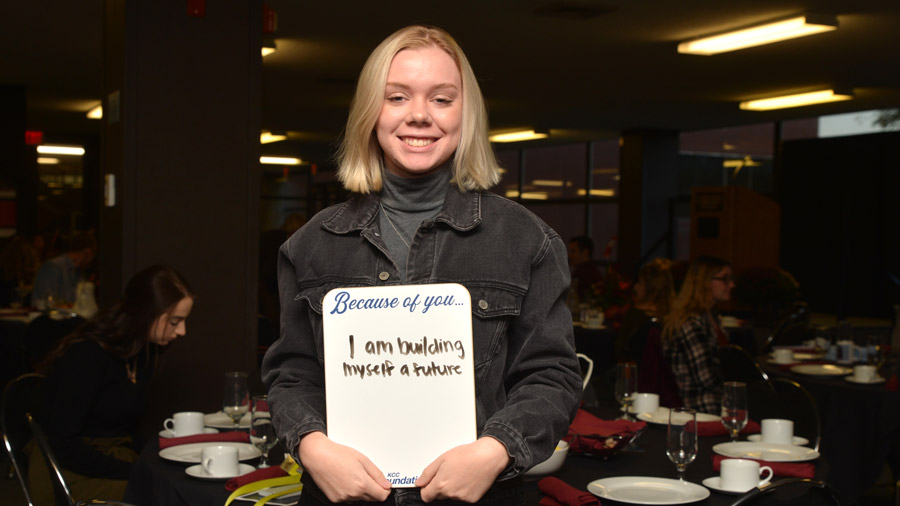 Because of you...
I am building
myself a future
KCC
Foundation